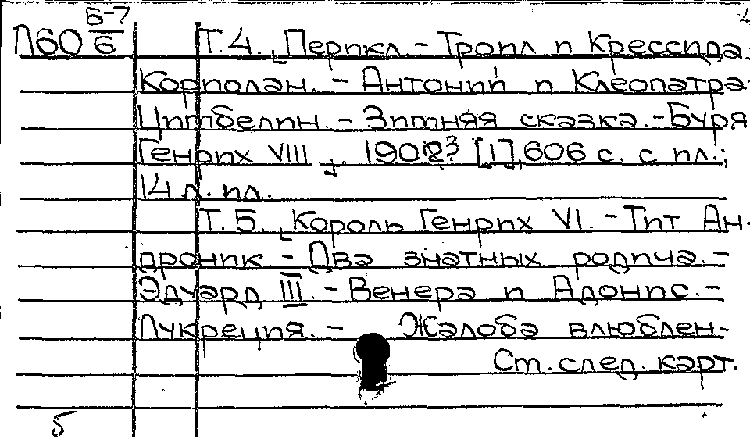 Л60 6-7/6 Т.4. Перикл. - Троил и Крессида.
Кориолан. - Антоний и Клеопатра
Цимбелин. - Зимняя сказка. - Буря
Генрих VIII. [1], 606 с. с ил.;
14 л. ил.
Т.5. Король Генрих VI. - Тит Ан-
дроник - Два знатных родича. -
Эдуард III. - Венера и Адонис. -
Лукреция. - Жалоба влюблен-
См. след. карт.
5